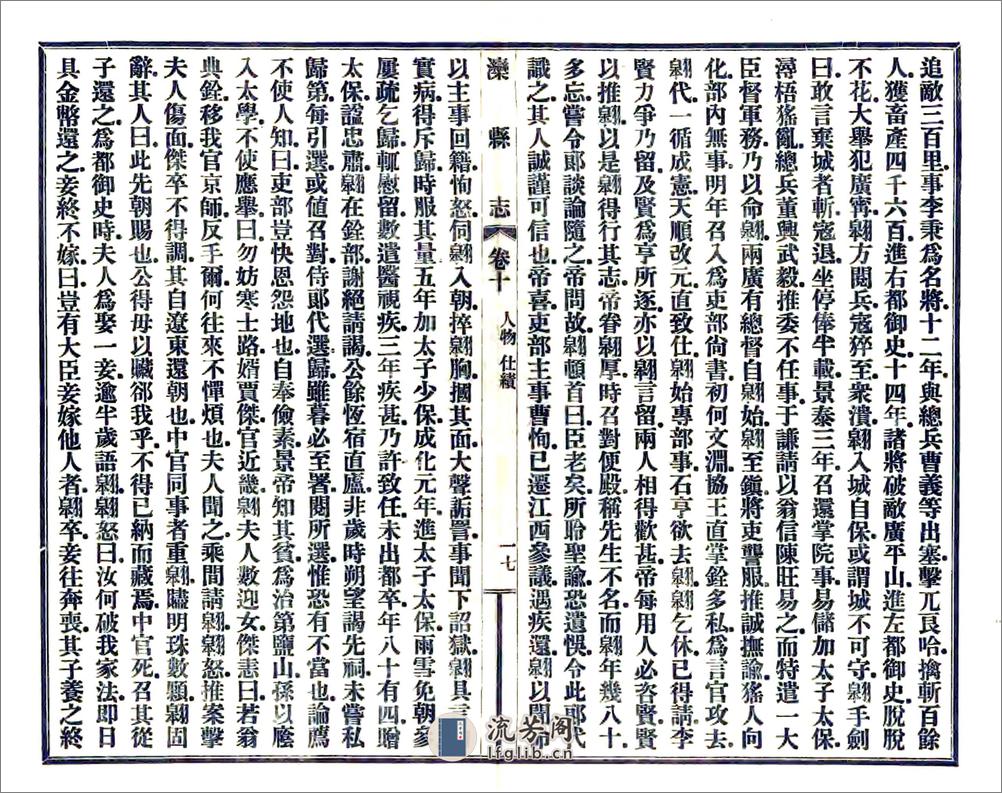 追敵三百里事李秉為名將十二年與總兵曹義等出塞擊兀良哈擒斬百餘
人獲畜產四千六百進右都御史十四年諸將破敵廣平山進左都御史脫脫
不花大舉犯廣甯翱方閱兵寇猝至衆潰翱入城自保或謂城不可守翱手劍
曰敢言棄城者斬寇退坐停俸半載景泰三年召還掌院事易儲加太子太保
潯梧猺亂總兵董興武毅推委不任事于謙請以翁信陳旺易之而特遣一大
臣督軍務乃以命翱兩廣有總督自翱始翱至鎮將吏讋服推誠撫諭猺人向
化部內無事明年召入為吏部尚書初何文淵協王直掌銓多私為言官攻去
翱代一循成憲天順改元直致仕翱始專部事石亨欲去翱翱乞休已得請李
賢力爭乃留及賢為亨所逐亦以翱言留兩人相得歡甚帝每用人必咨賢賢
以推翱以是翱得行其志帝眷翱厚時召對便殿稱先生不名而翱年幾八十
多忘嘗令郎談論隨之帝問故翱頓首曰臣老矣所聆聖諭恐遺悞令此郎代
識之其人誠謹可信也帝喜吏部主事曹恂已遷江西參議遇疾還翱以聞命
灤縣志 卷十 人物 仕績 一七
以主事回籍恂怒伺翱入朝捽翱胸摑其面大聲詬詈事聞下詔獄翱具言
實病得斥歸時服其量五年加太子少保成化元年進太子太保雨雪免朝參
屢疏乞歸輒慰留數遣醫視疾三年疾甚乃許致仕未出都卒年八十有四贈
太保諡忠肅翱在銓部謝絕請謁公餘恆宿直廬非歲時朔望謁先祠未嘗私
歸第每引選或值召對侍郎代選歸雖暮必至署閱所選惟恐有不當也論薦
不使人知曰吏部豈快恩怨地也自奉儉素景帝知其貧為治第鹽山孫以廕
入太學不使應舉曰勿妨寒士路婿賈傑官近畿翱夫人數迎女傑恚曰若翁
典銓移我官京師反手爾何往來不憚煩也夫人聞之乘間請翱翱怒推案擊
夫人傷面傑卒不得調其自遼東還朝也中官同事者重翱贐明珠數顆翱固
辭其人曰此先朝賜也公得毋以贓郤我乎不得已納而藏焉中官死召其從
子還之為都御史時夫人為娶一妾逾半歲語翱翱怒曰汝何破我家法即日
具金幣還之妾終不嫁曰豈有大臣妾嫁他人者翱卒妾往奔喪其子養之終
流芳閣
lfglib.cn